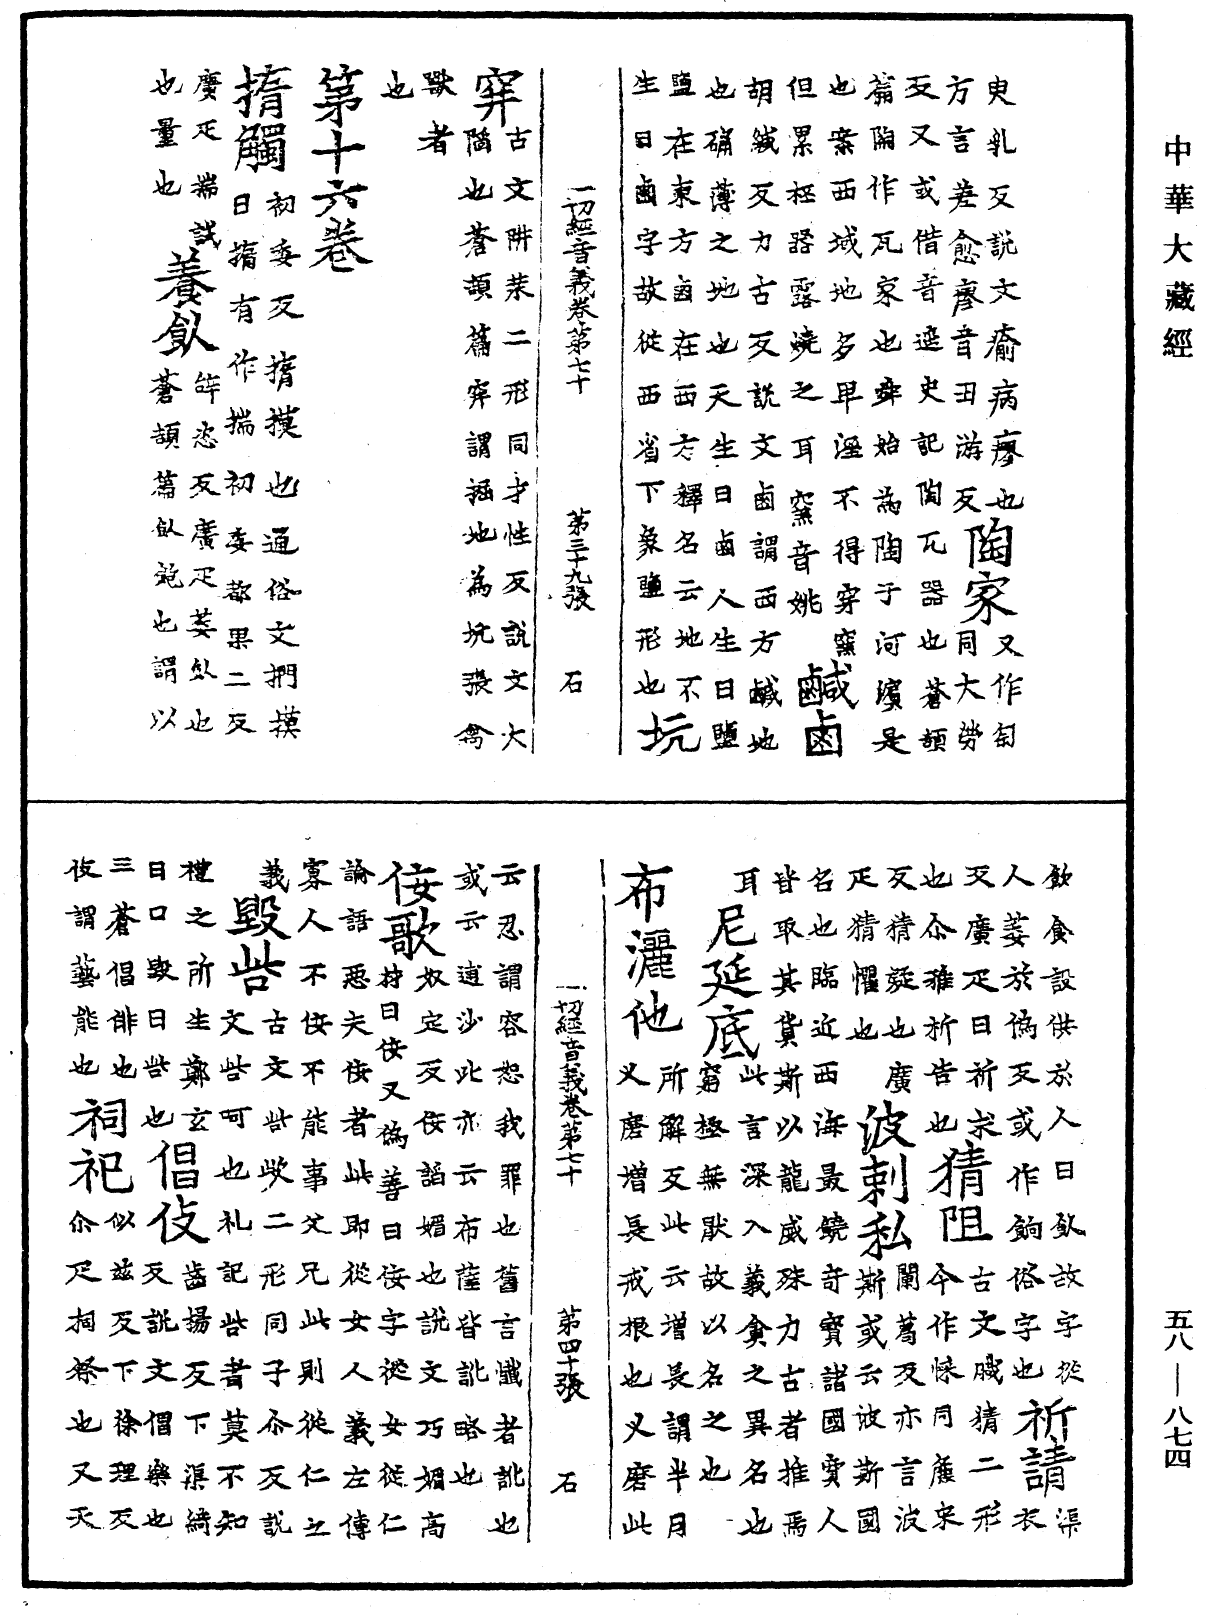 中華大藏經
臾乳反說文瘉病瘳也
方言差愈瘳音丑游反陶家又作匋同大勞
反又或借音遥史記陶瓦器也蒼頡
篇陶作瓦家也舜始為陶于河濱是
也案西域地多卑濕不得穿窯
但累坯器露燒之耳窯音姚鹹鹵
胡緘反力古反說文鹵謂西方鹹地
也确薄之地也天生曰鹵人生曰鹽
鹽在東方鹵在西方釋名云地不
生曰鹵字故從西省下象鹽形也坑
一切經音義卷第七十 第三十九張 石
穽古文阱𦮽二形同才性反說文大
陷也蒼頡篇穽謂掘地為坑張禽
獸者
也
第十六卷
揣觸初委反揣摸也通俗文捫摸
曰揣有作揣初委都果二反
廣疋揣試
也量也養飤辝恣反廣疋萎飤也
蒼頡篇飤飽也謂以
飲食設供於人曰飤故字從
人萎於偽反或作餉俗字也祈請渠衣
反廣疋曰祈求
也尒雅祈告也猜阻古文𧡪猜二形
今作㥽同麁來
反猜疑也廣
疋猜懼也波刺私闌葛反亦言波
斯或云波斯國
名也臨近西海最饒奇寶諸國寶人
皆取其貨斯以龍威殊力古者推焉
耳尼延底此言深入義貪之異名也
窮極無猒故以名之也
布灑他所解反此云增長謂半月
又磨增長戒根也又磨此
一切經音義卷第七十 第四十張 石
云忍謂容恕我罪也舊言懺者訛也
或云逋沙此亦云布薩皆訛略也
佞歌奴定反佞謟媚也說文巧媚高
材曰佞又偽善曰佞字從女從仁
論語惡夫佞者此即從女人義左傳
寡人不佞不能事父兄此則從仁之
義毀呰古文呰㰣二形同子尒反說
文呰呵也礼記呰者莫不知
禮之所生鄭玄
曰口毀曰呰也倡伎齒揚反下渠綺
反說文倡樂也
三蒼倡俳也
伎謂藝能也祠祀似兹反下徐理反
尒疋祠祭也又天
五八—八七四